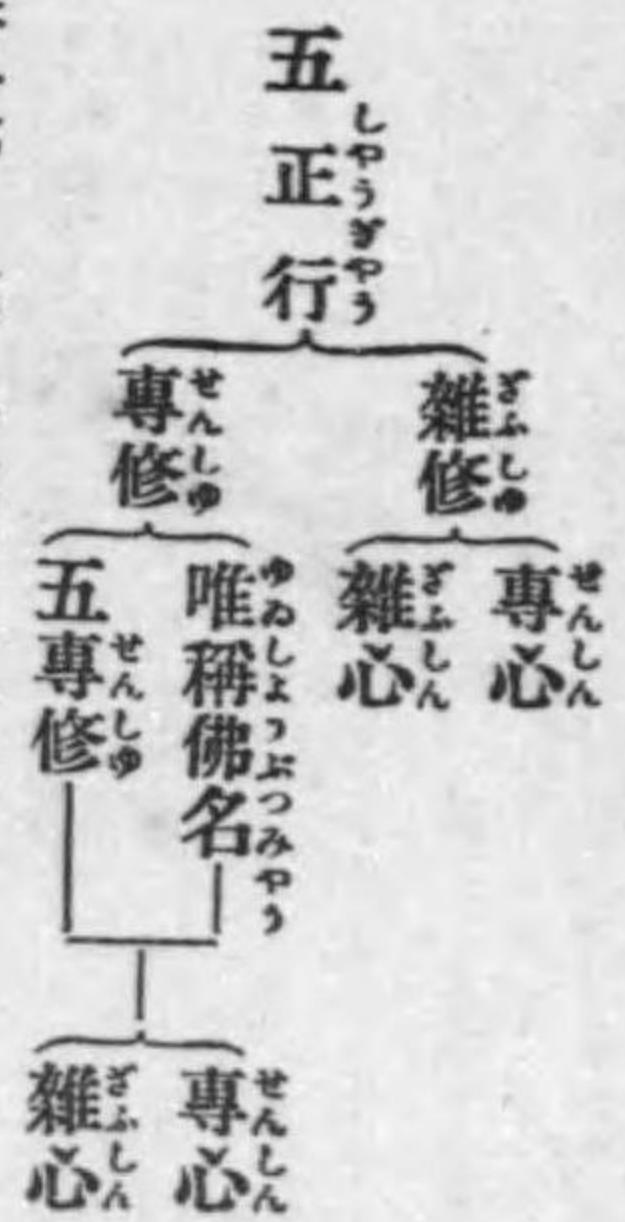 五正行
しやうぎやう
雜修
ざふしゆ
專心
せんしん
雜心
ざふしん
專修
せんしゆ
唯稱佛名
ゆゐしょうぶつみやう
五專修
せんしゆ
專心
せんしん
雜心
ざふしん